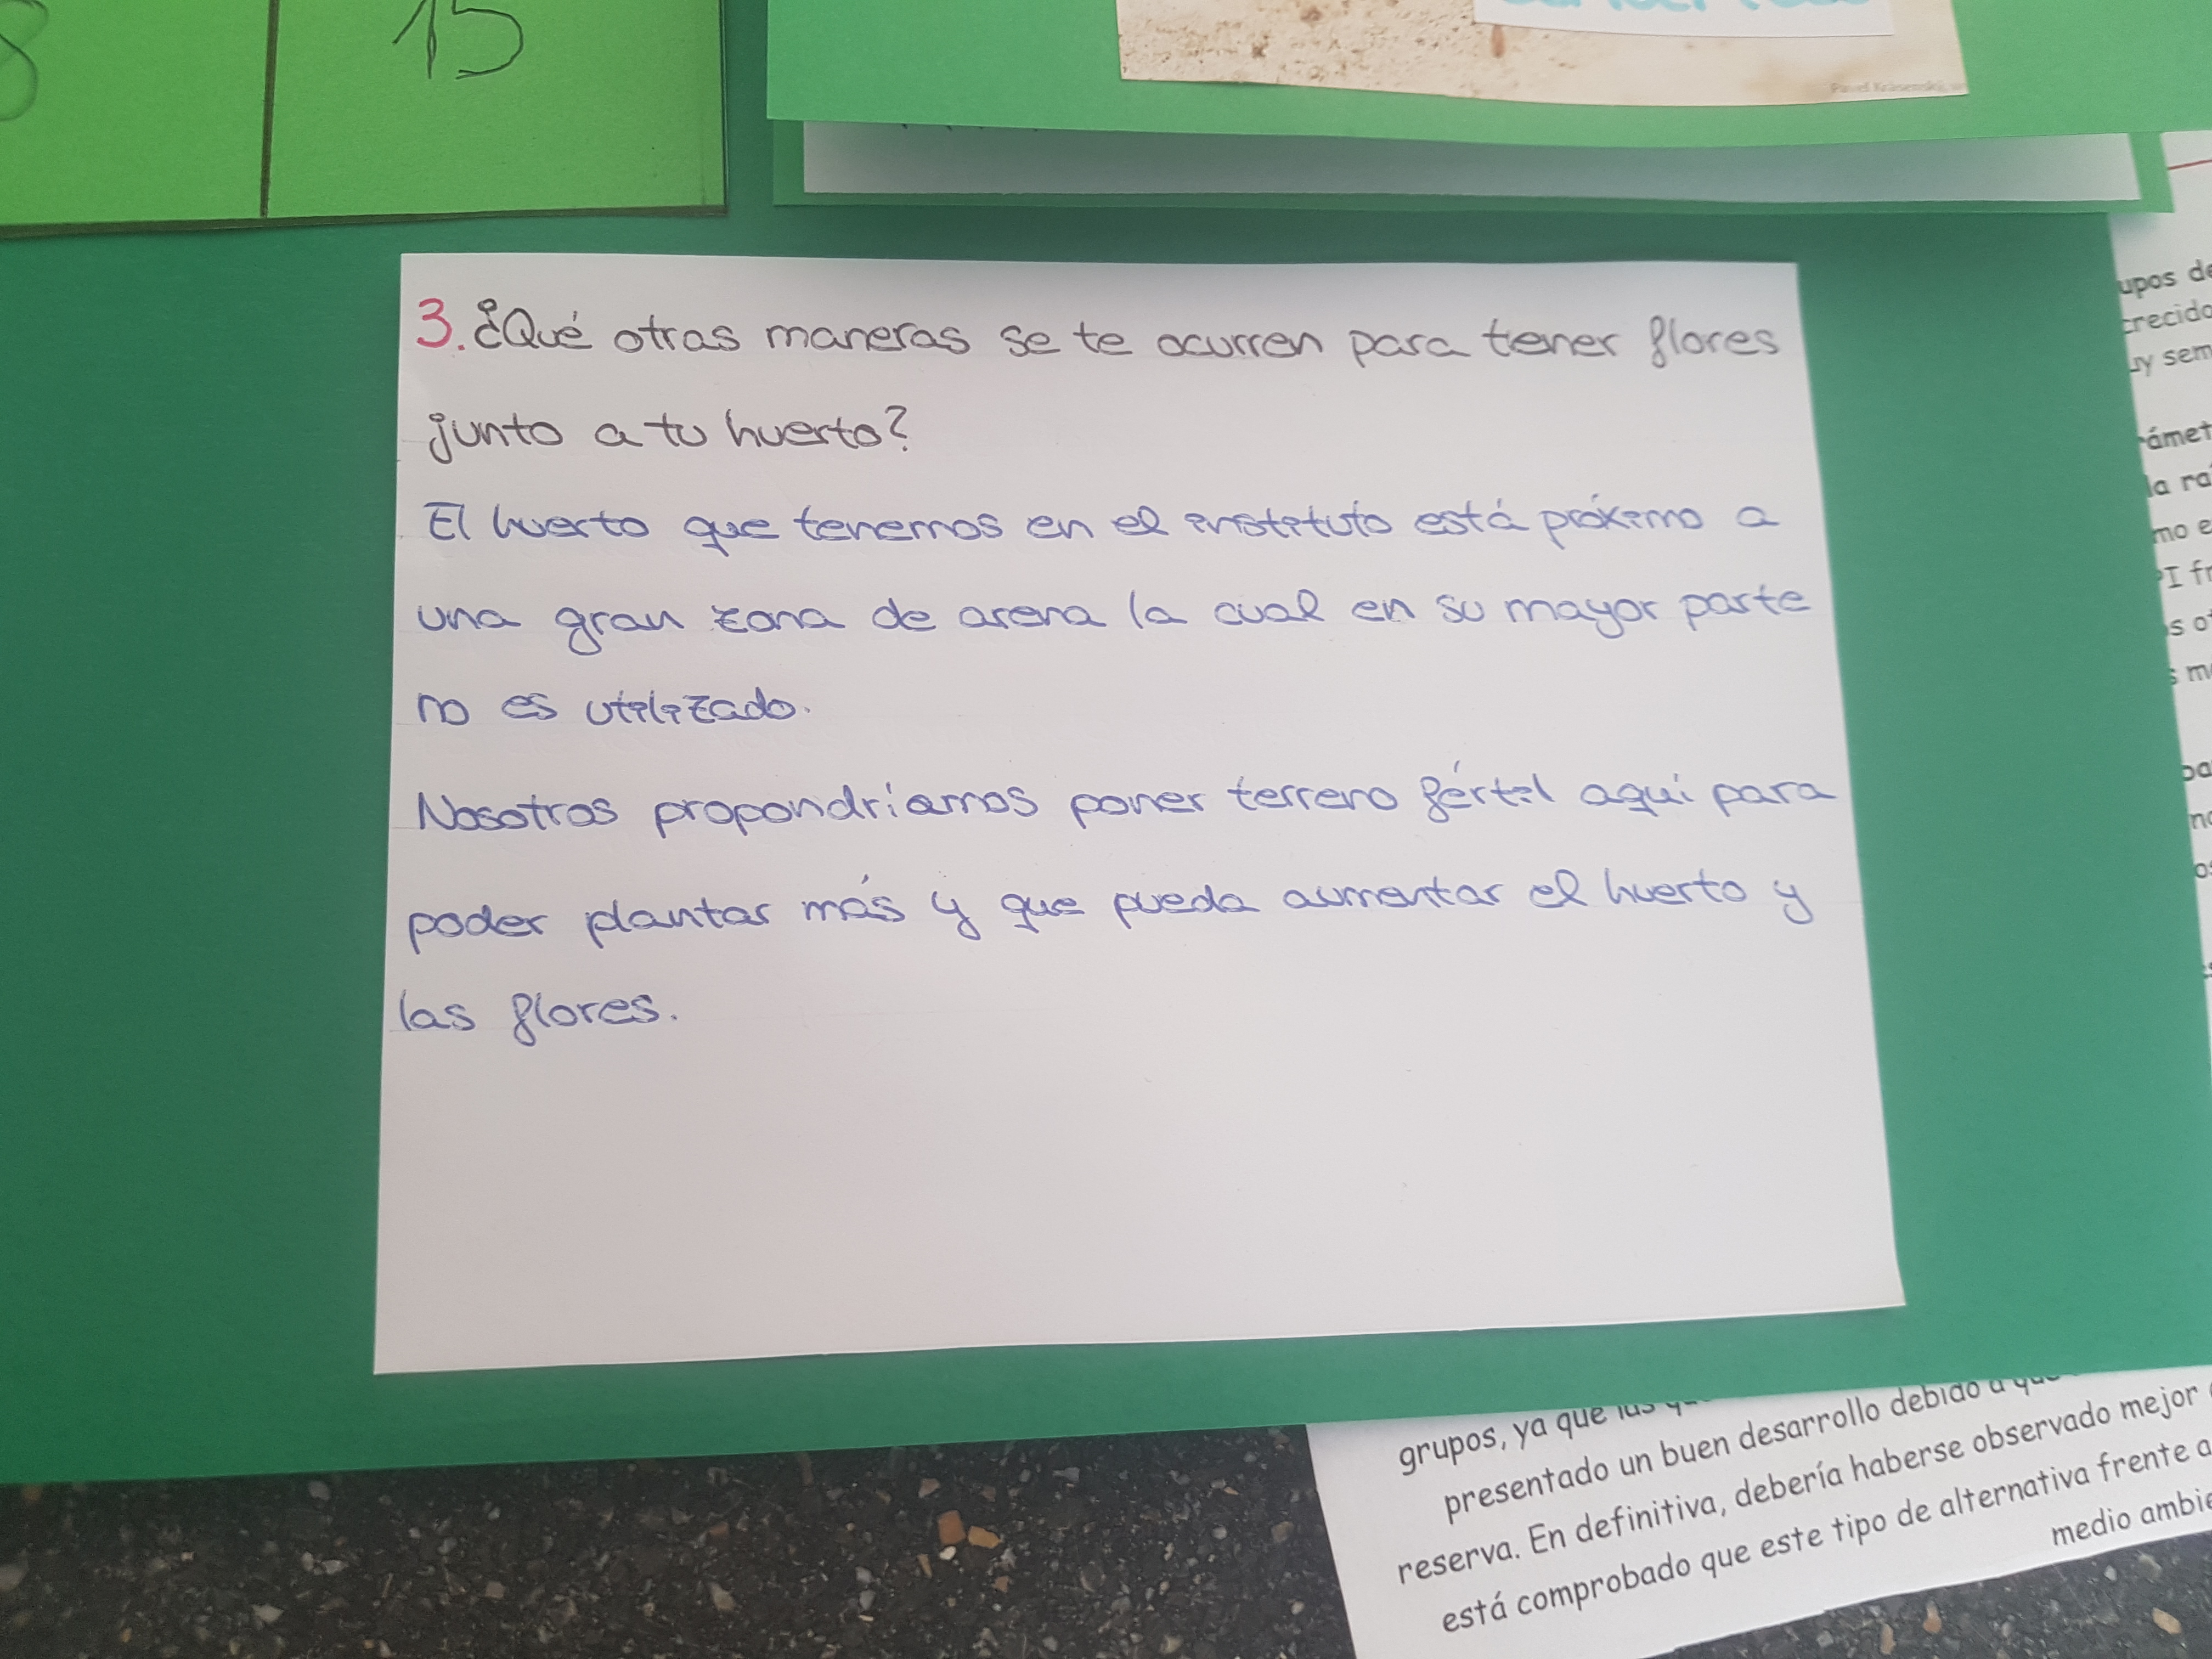 15
3. ¿Qué otras maneras se te ocurren para tener flores
junto a tu huerto?
El huerto que tenemos en el instituto está próximo a
una gran zona de arena la cual en su mayor parte
no es utilizado.
Nosotros propondríamos poner terreno fértil aquí para
poder plantar más y que pueda aumentar el huerto y
las flores.
grupos, ya que las
presentado un buen desarrollo debido a que
reserva. En definitiva, debería haberse observado mejor
está comprobado que este tipo de alternativa frente a
medio ambie
upos de
crecido
uy sem
rámet
la ra
mo e
PI fr
s ot